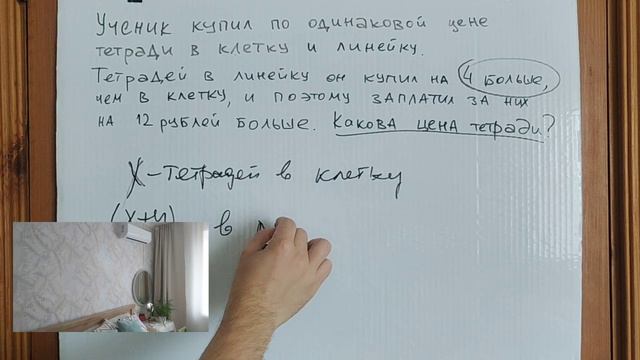 Ученик купил по одинаковой цене
тетради в клетку и линейку.
Тетрадей в линейку он купил на 4 больше,
чем в клетку, и поэтому заплатил за них
на 12 рублей больше. Какова цена тетради?
X - тетрадей в клетку
(x+4) в